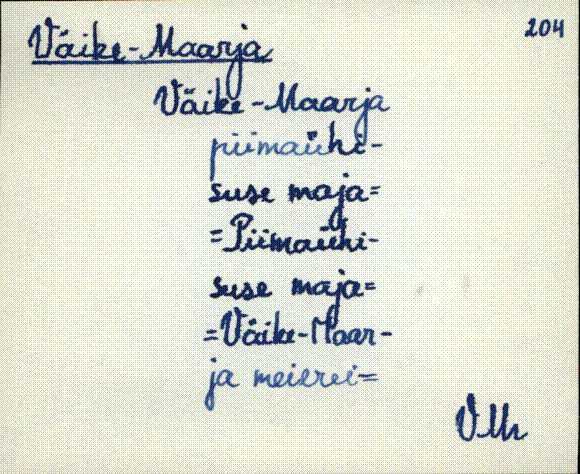 204
Väike-Maarja
Väike-Maarja
piimaühi-
suse maja=
=Piimaühi-
suse maja=
=Väike-Maar-
ja meierei=
V.Mr